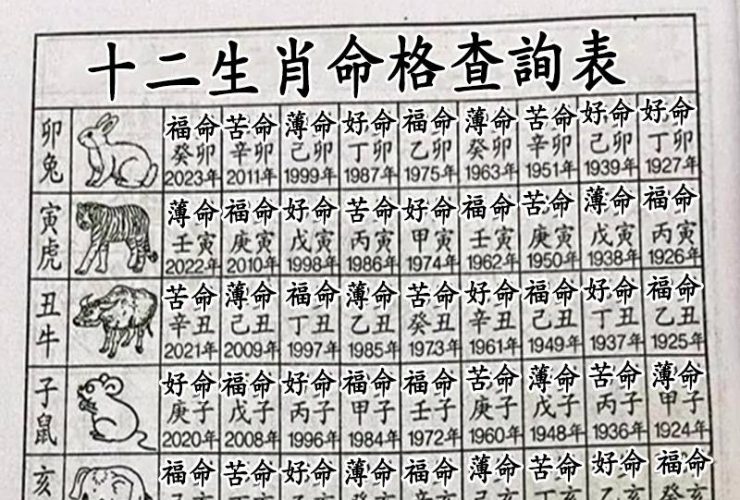 十二生肖命格查詢表
卯兔 福命 苦命 薄命 好命 福命 薄命 苦命 好命 好命
癸卯 辛卯 己卯 丁卯 乙卯 癸卯 辛卯 己卯 丁卯
2023年 2011年 1999年 1987年 1975年 1963年 1951年 1939年 1927年
寅虎 薄命 福命 好命 苦命 好命 福命 苦命 薄命 福命
壬寅 庚寅 戊寅 丙寅 甲寅 壬寅 庚寅 戊寅 丙寅
2022年 2010年 1998年 1986年 1974年 1962年 1950年 1938年 1926年
丑牛 苦命 薄命 福命 薄命 苦命 好命 福命 好命 福命
辛丑 己丑 丁丑 乙丑 癸丑 辛丑 己丑 丁丑 乙丑
2021年 2009年 1997年 1985年 1973年 1961年 1949年 1937年 1925年
子鼠 好命 福命 好命 福命 福命 苦命 薄命 苦命 薄命
庚子 戊子 丙子 甲子 壬子 庚子 戊子 丙子 甲子
2020年 2008年 1996年 1984年 1972年 1960年 1948年 1936年 1924年
亥 福命 苦命 好命 福命 福命 薄命 苦命 好命 福命